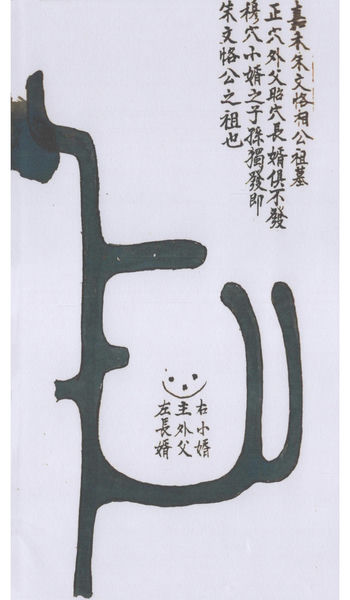 嘉禾朱文恪相公祖墓
正穴外父昭穴長婿俱不發
穆穴小婿之子孫獨發即
朱文恪公之祖也
右小婿
主外父
左長婿